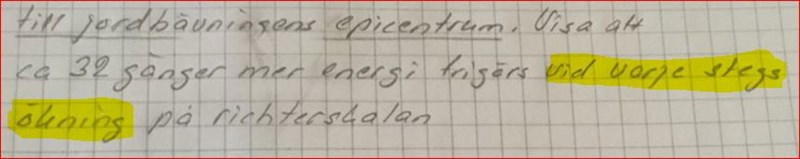 till jordbävningens epicentrum. Visa att
ca 32 gånger mer energi frigörs vid varje stegs
ökning på richterskalan